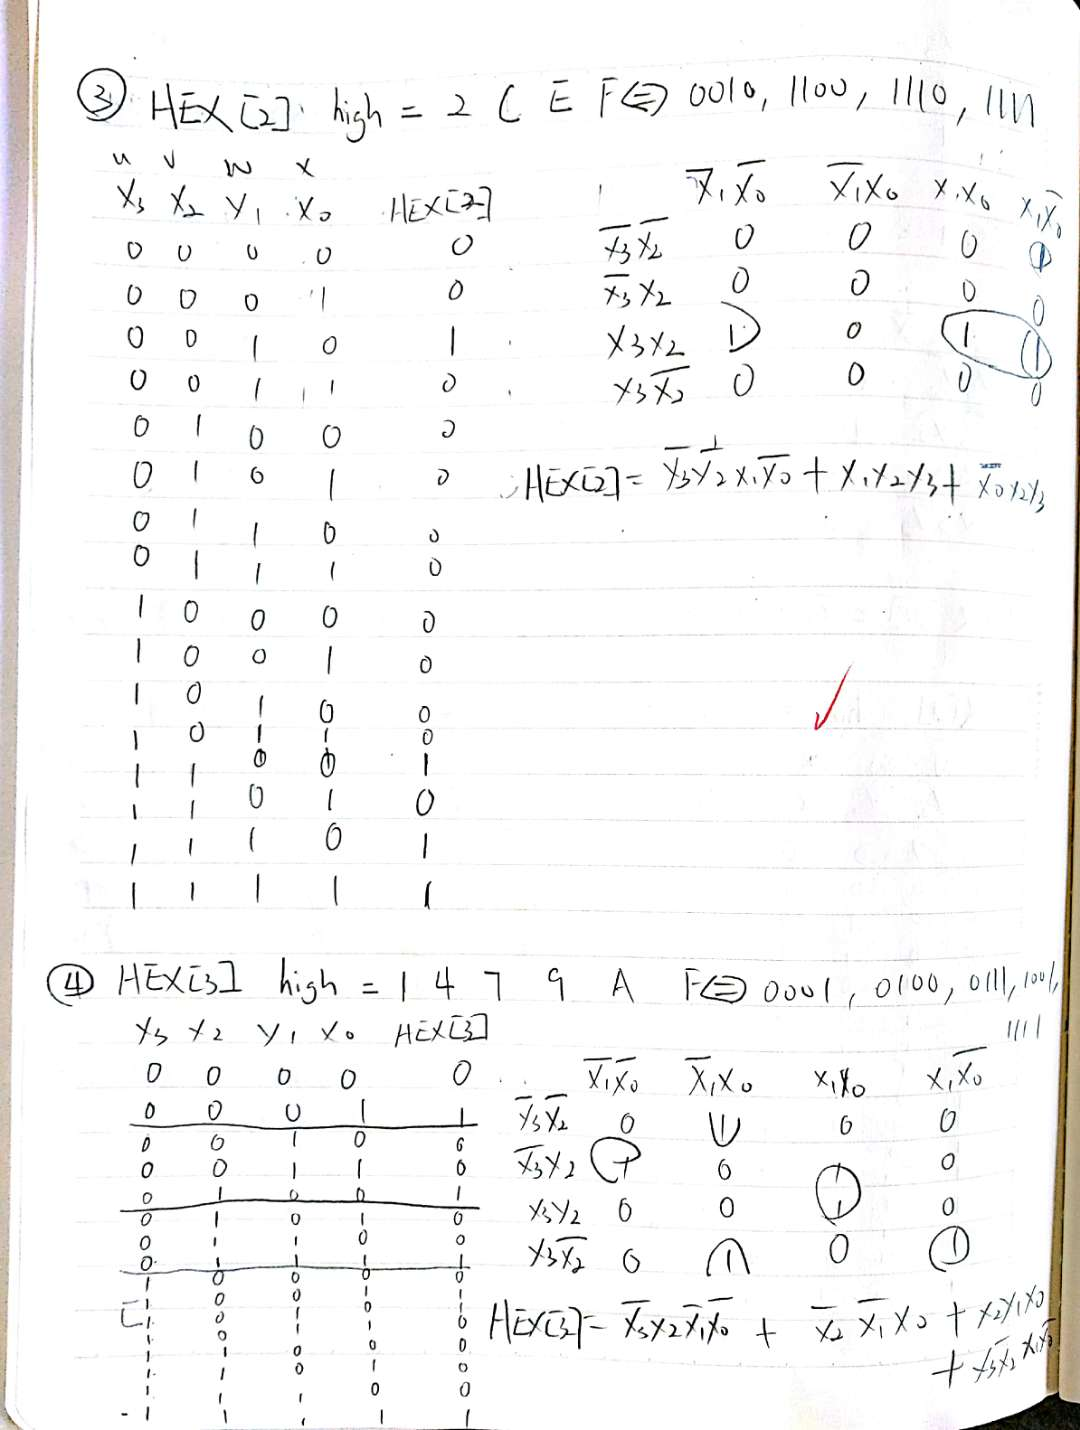 ③ HEX[2]: high = 2 C E F ⇔ 0010, 1100, 1110, 1111
u v w x
X₃ X₂ X₁ X₀ HEX[2]
0 0 0 0 0
0 0 0 1 0
0 0 1 0 1
0 0 1 1 0
0 1 0 0 0
0 1 0 1 0
0 1 1 0 0
0 1 1 1 0
1 0 0 0 0
1 0 0 1 0
1 0 1 0 0
1 0 1 1 0
1 1 0 0 1
1 1 0 1 0
1 1 1 0 1
1 1 1 1 1
X̅₁X̅₀ X̅₁X₀ X₁X₀ X₁X̅₀
X̅₃X̅₂ 0 0 0 1
X̅₃X₂ 0 0 0 0
X₃X₂ 1 0 1 1
X₃X̅₂ 0 0 0 0
HEX[2] = X̅₃X̅₂X₁X̅₀ + X₁X₂X₃ + X̅₀X₂X₃
④ HEX[3] high = 1 4 7 9 A F ⇔ 0001, 0100, 0111, 1001,
1111
X₃ X₂ X₁ X₀ HEX[3]
0 0 0 0 0
0 0 0 1 1
0 0 1 0 0
0 0 1 1 0
0 1 0 0 1
0 1 0 1 0
0 1 1 0 0
0 1 1 1 1
1 0 0 0 0
1 0 0 1 1
1 0 1 0 1
1 0 1 1 0
1 1 0 0 0
1 1 0 1 0
1 1 1 0 0
1 1 1 1 1
X̅₁X̅₀ X̅₁X₀ X₁X₀ X₁X̅₀
X̅₃X̅₂ 0 1 0 0
X̅₃X₂ 1 0 1 0
X₃X₂ 0 0 1 0
X₃X̅₂ 0 1 0 1
HEX[3] = X̅₃X₂X̅₁X̅₀ + X̅₂X̅₁X₀ + X₂X₁X₀
+ X₃X̅₂X₁X̅₀